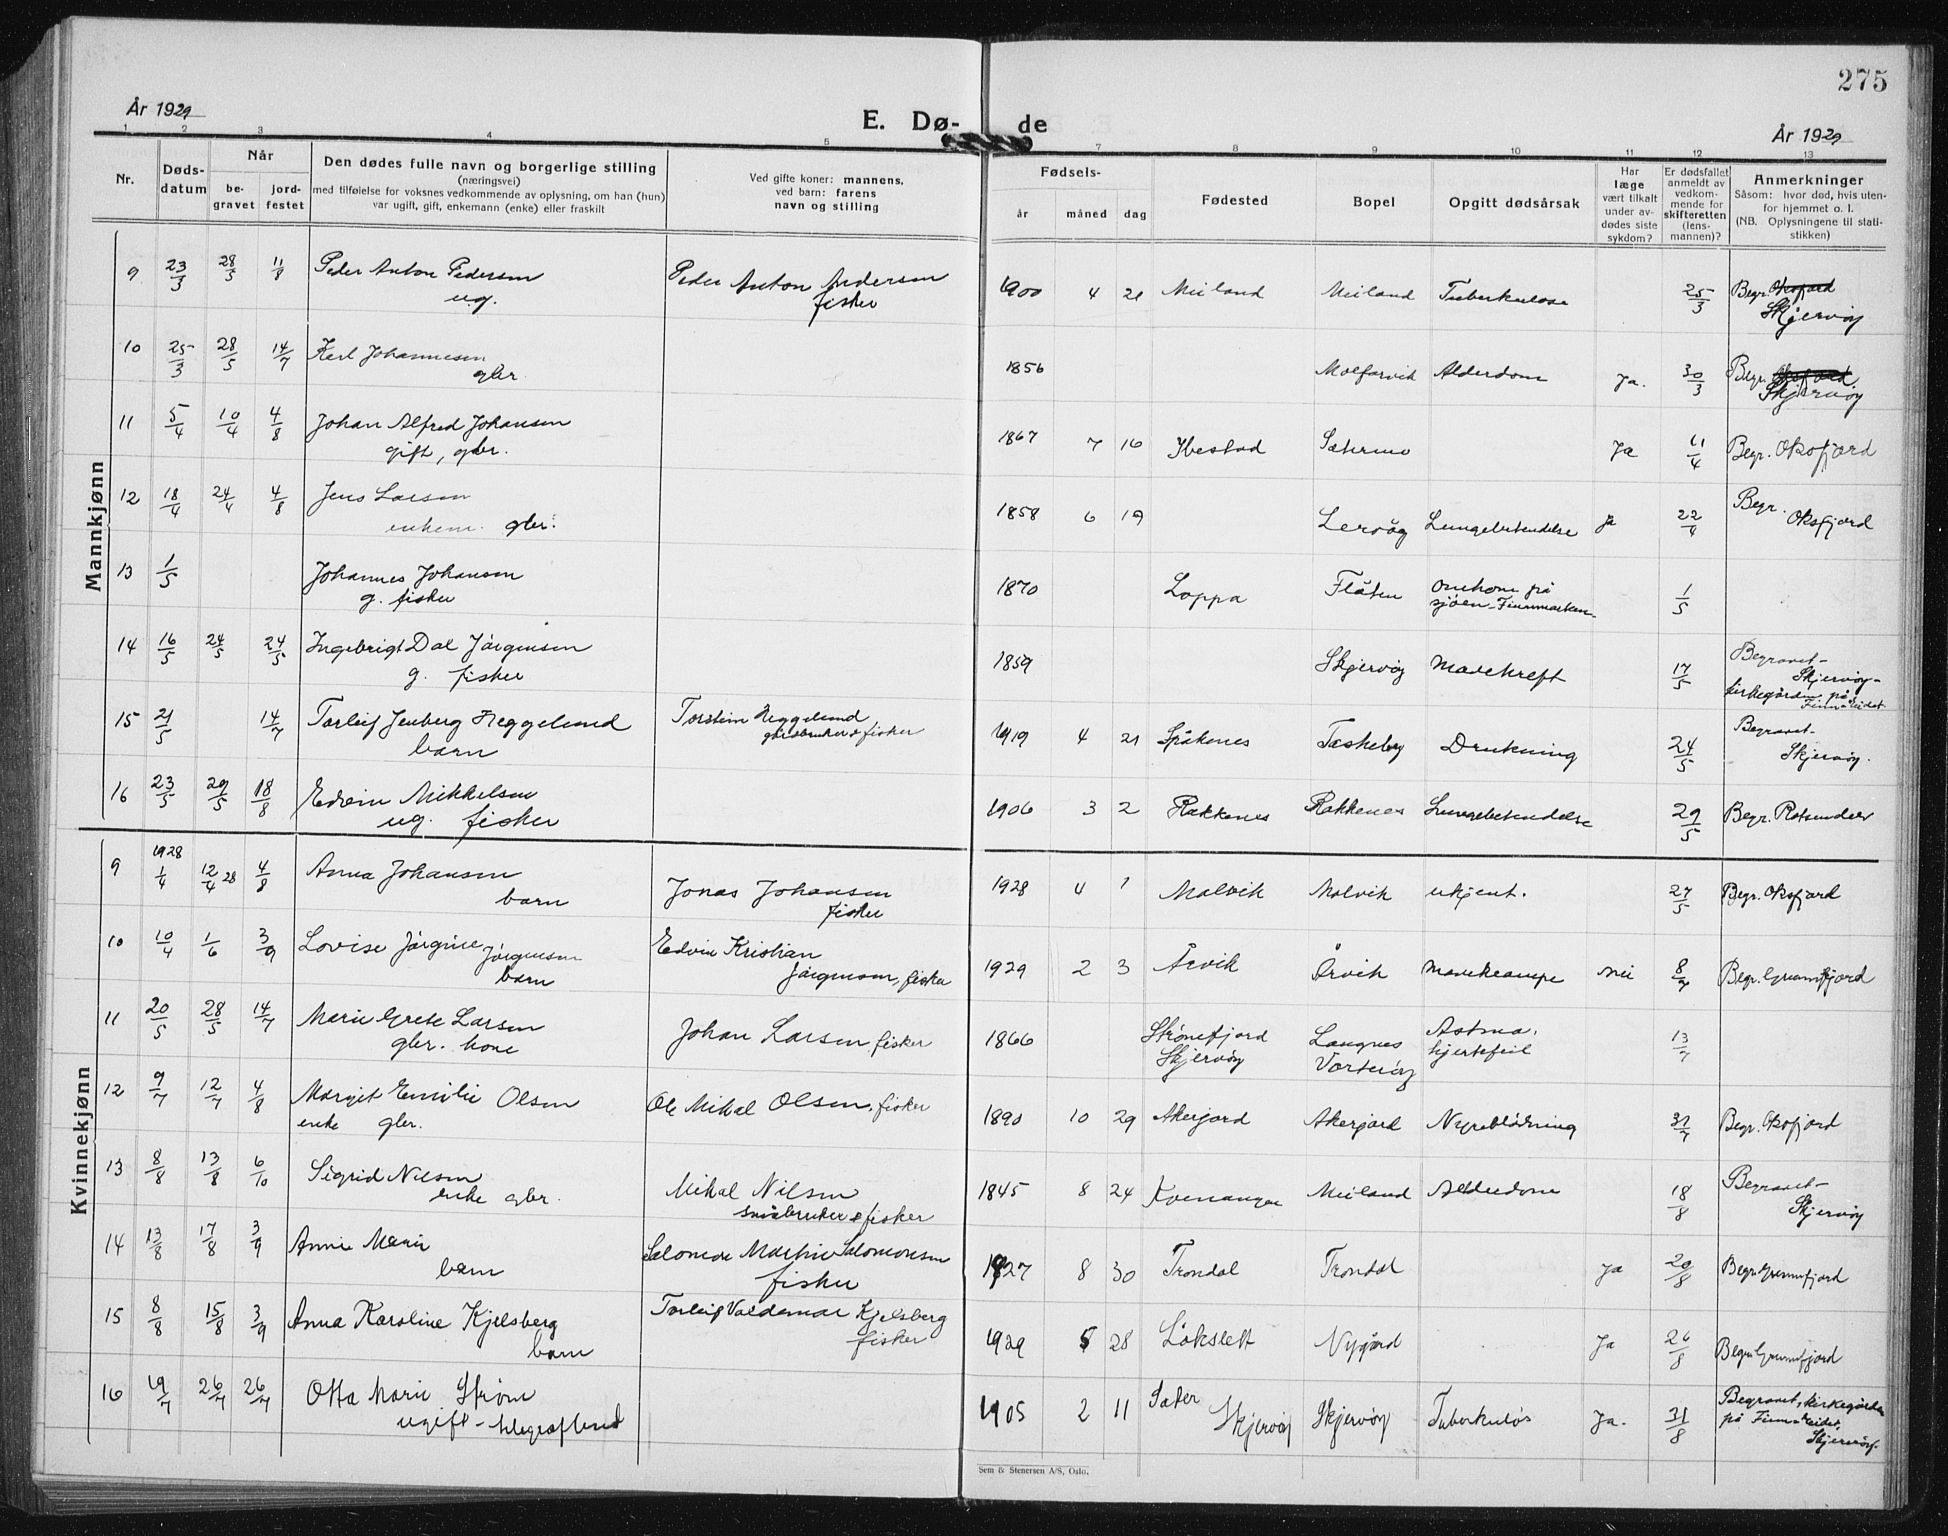 275
År 1929
E. Dø-
de
År 1929
1 2 3 4 5 7 8 9 10 11 12 13
Nr.
Døds-
datum
Når
be-
gravet
jord-
festet
Den dødes fulle navn og borgerlige stilling
(næringsvei)
med tilføielse for voksnes vedkommende av oplysning, om han (hun)
var ugift, gift, enkemann (enke) eller fraskilt
Ved gifte koner: mannens,
ved barn: farens
navn og stilling
Fødsels-
år måned dag
Fødested
Bopel
Opgitt dødsårsak
Har
læge
vært tilkalt
under av-
dødes siste
sykdom?
Er dødsfallet
anmeldt av
vedkom-
mende for
skifteretten
(lens-
mannen)?
Anmerkninger
Såsom: hvor død, hvis uten-
for hjemmet o. l.
(NB. Oplysningene til stati-
stikken)
Mannkjønn
9 23/3 28/5 11/8 Peder Anton Pedersen Peder Anton Andersen 1900 4 21 Meiland Meiland Tuberkulose 25/3 Begr. Oksfjord
ug. fisker Skjervøy
10 25/3 28/5 14/7 Karl Johannesen 1856 Alderdom Ja. 30/3 Begr. Oksfjord
gbr. Skjervøy
11 5/4 10/4 4/8 Johan Alfred Johansen 1867 7 16 Ibestad Ja 11/4 Begr. Oksfjord
gift, gbr.
12 18/4 24/4 4/8 Jens Larsen 1858 6 19 Lervåg Lungebetendelse ja 22/4 Begr.
enkem. gbr. Oksfjord
13 1/5 Johannes Johansen 1870 Loppa Flåten omkom på 1/5
g. fisker sjøen - Finnmarken
14 16/5 24/5 24/5 Ingebrigt Dal Jørgensen 1859 Skjervøy Mavekreft 17/5 Begravet
g. fisker Skjervøy-
kirkegården på
Finneidet
15 21/5 14/7 Torleif Jenberg Heggelund Torstein Heggelund 1919 4 21 Spåkenes Taskeby Drukning 24/5 Begravet
barn gårdbruker & fisker Skjervøy.
16 23/5 29/5 18/8 Edvin Mikkelsen 1906 3 2 Rakkenes Rakkenes Lungebetendelse 29/5 Begr. Rotsundelv
ug. fisker
Kvinnekjønn
9 1928 1/4 12/4 28 4/8 Anna Johansen Jonas Johansen 1928 4 1 Malvik Malvik ukjent. 27/5 Begr. Oksfjord
barn fisker
10 10/4 1/6 3/9 Lovise Jørgine Jørgensen Edvin Kristian 1929 2 3 Årvik Årvik Mavekrampe nei Begr. Grunnfjord
barn Jørgensen, fisker
11 20/5 28/5 14/7 Marie Grete Larsen Johan Larsen, fisker 1866 Langnes Astma, 13/7
gbr. kone Skjervøy Vorterøy hjertefeil
12 9/7 12/7 4/8 Margit Emilie Olsen Ole Mikal Olsen, fisker 1890 10 29 Akerjord Akerjord Nyreblødning 31/7 Begr. Oksfjord
enke gbr.
13 8/8 13/8 6/10 Sigrid Nilsen Mikal Nilsen 1845 8 24 Kvenangen Meiland Alderdom 18/8 Begravet
enke gbr. småbruker & fisker Skjervøy
14 13/8 17/8 3/9 Anne Marie Salomon Martin Salomonsen 1927 8 30 Trondal Trondal Ja 20/8 Begr. Grunnfjord
barn fisker
15 8/8 15/8 3/9 Anna Karoline Kjelsberg Torleif Valdemar Kjelsberg 1929 5 28 Løkslett Nygård Ja 26/8 Begr. Grunnfjord
barn fisker
16 19/7 26/7 26/7 Otta Marie Strøm 1905 2 11 Sæter Skjervøy Skjervøy Tuberkuløs Ja. 31/8 Begravet, kirkegården
ugift - på Finneidet,
Skjervøy.
Sem & Stenersen A/S, Oslo.